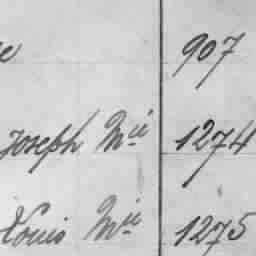 e 907
Joseph Mie 1274
Louis Mie 1275